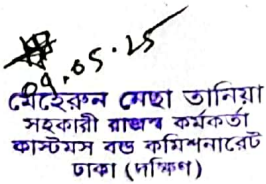 09.05.25
মেহেরুন নেছা তানিয়া
সহকারী রাজস্ব কর্মকর্তা
কাস্টমস বন্ড কমিশনারেট
ঢাকা (দক্ষিণ)